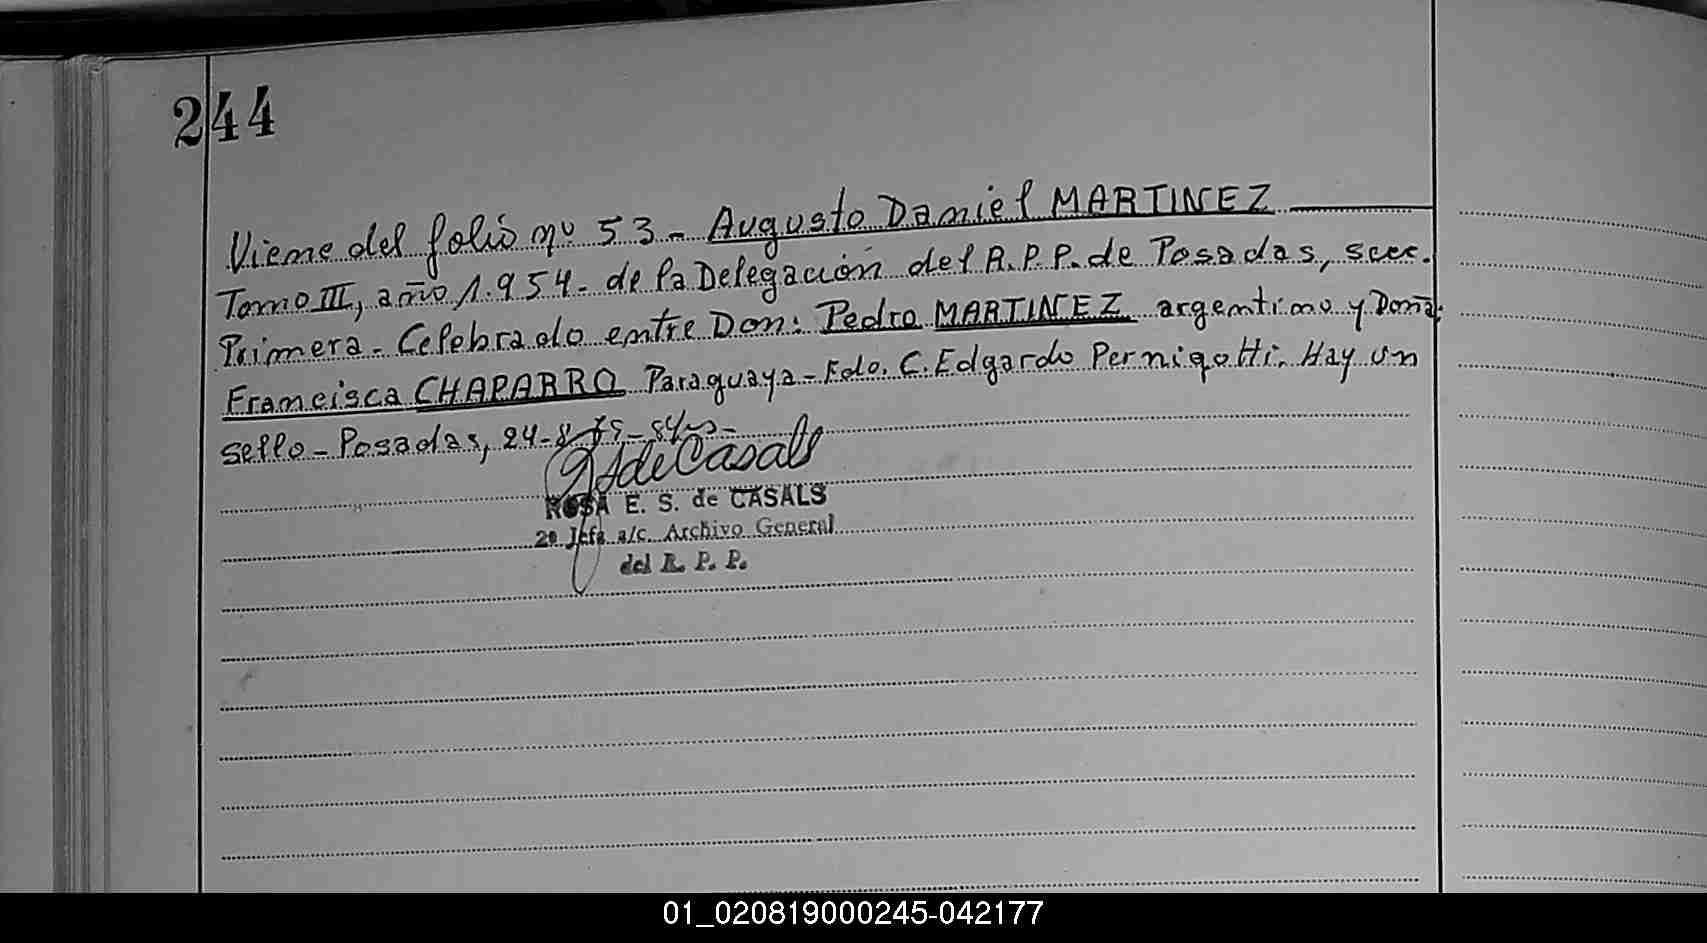 244
Viene del folio nº 53 - Augusto Daniel MARTINEZ
Tomo III, año 1.954 - de la Delegación del R.P.P. de Posadas, secc.
Primera - Celebrado entre Don: Pedro MARTINEZ argentino y Doña:
Francisca CHAPARRO Paraguaya - Fdo. C. Edgardo Pernigotti. Hay un
sello - Posadas, 24-8-
de Casals
ROSA E. S. de CASALS
2ª Jefa a/c. Archivo General
del R. P. P.
01_020819000245-042177